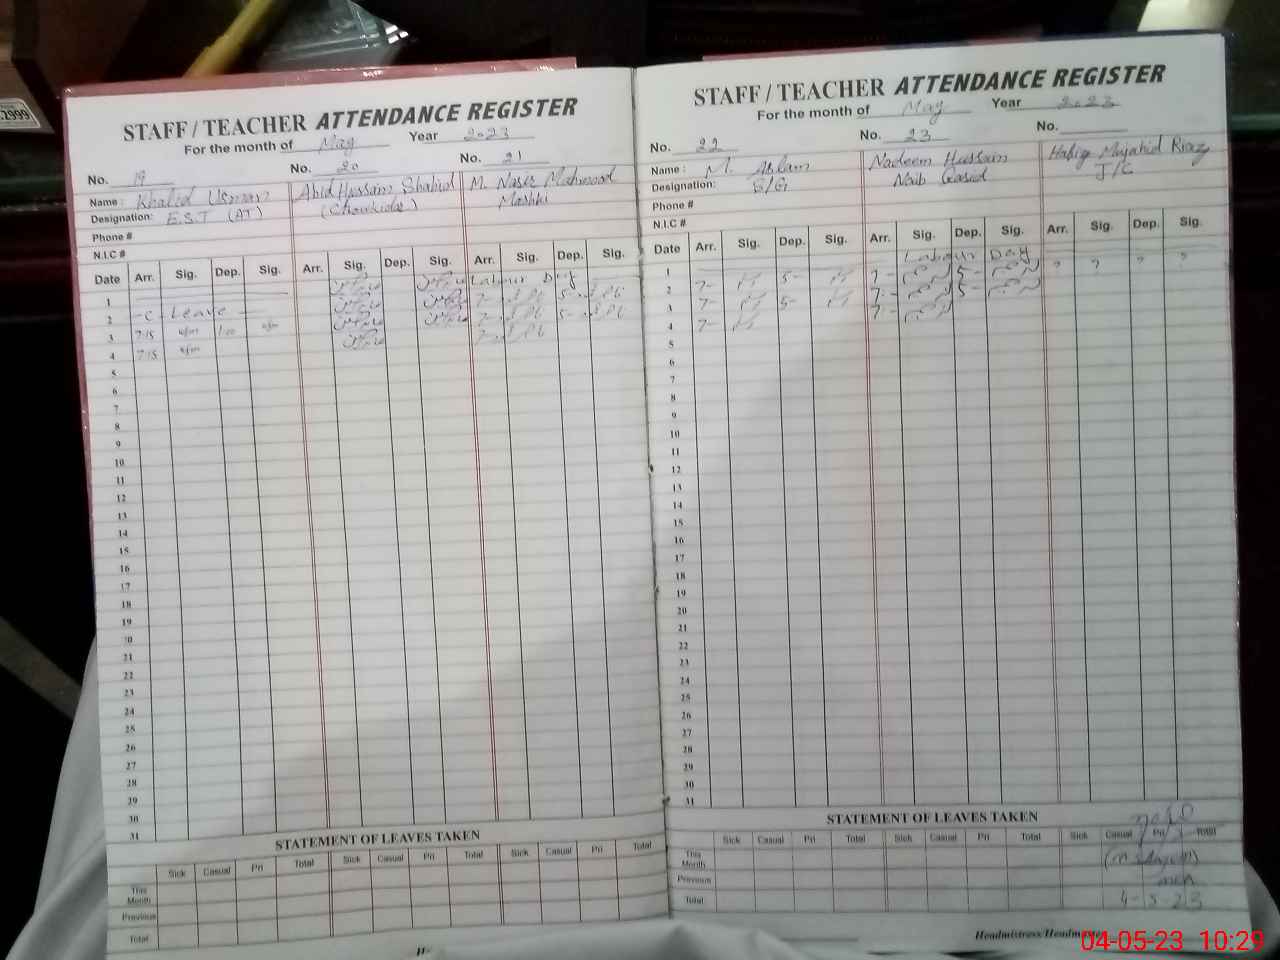 STAFF / TEACHER ATTENDANCE REGISTER
For the month of May Year 2023
No. 19 No. 20 No. 21
Name: Khalid Usman Abid Hussain Shahid M. Nasir Mahmood
Designation: E.S.T (AT) (Chowkidar) Mashki
Phone #
N.I.C #
Date Arr. Sig. Dep. Sig. Arr. Sig. Dep. Sig. Arr. Sig. Dep. Sig.
1 Labour Day
2 C Leave 7- 5-
3 7:15 1:00 7- 5-
4 7:15 7-
5
6
7
8
9
10
11
12
13
14
15
16
17
18
19
20
21
22
23
24
25
26
27
28
29
30
31
STATEMENT OF LEAVES TAKEN
Sick Casual Pri Total Sick Casual Pri Total Sick Casual Pri Total
This Month
Previous
Total
STAFF / TEACHER ATTENDANCE REGISTER
For the month of May Year 2023
No. 22 No. 23 No.
Name: M. Aslam Nadeem Hussain Hafiz Mujahid Riaz
Designation: S/G Naib Qasid J/C
Phone #
N.I.C #
Date Arr. Sig. Dep. Sig. Arr. Sig. Dep. Sig. Arr. Sig. Dep. Sig.
1 Labour Day
2 7- 5- 7- 5- ? ? ? ?
3 7- 5- 7- 5-
4 7- 7-
5
6
7
8
9
10
11
12
13
14
15
16
17
18
19
20
21
22
23
24
25
26
27
28
29
30
31
STATEMENT OF LEAVES TAKEN
Sick Casual Pri Total Sick Casual Pri Total Sick Casual Pri Total
This Month
Previous
Total 4-5-23
Headmistress/Headmaster
04-05-23 10:29